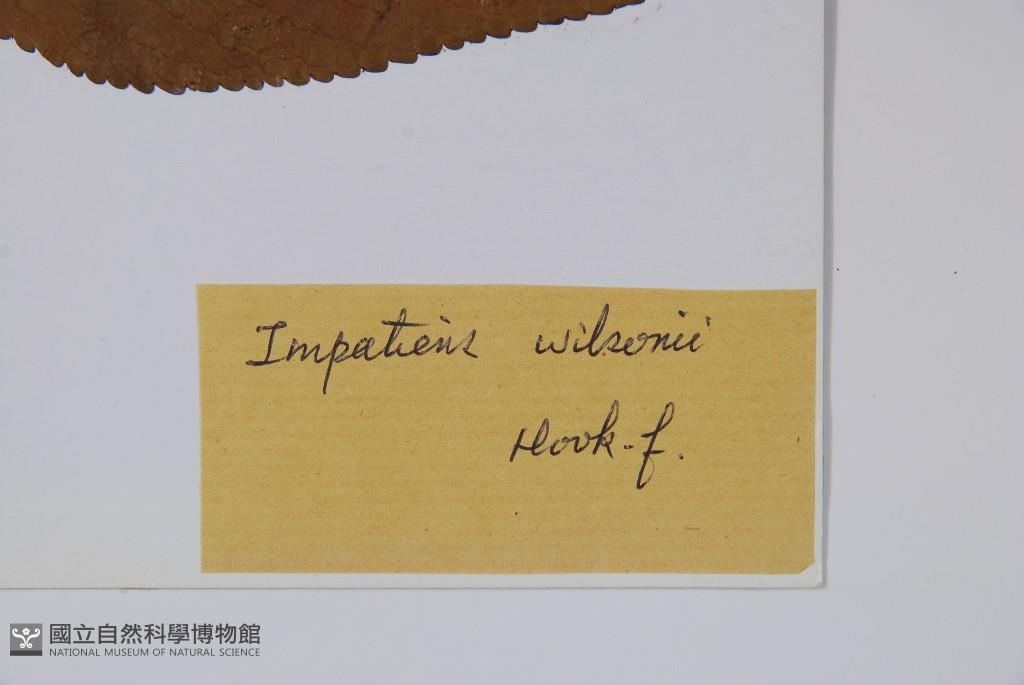 Impatiens wilsonii
Hook-f.
國立自然科學博物館
NATIONAL MUSEUM OF NATURAL SCIENCE